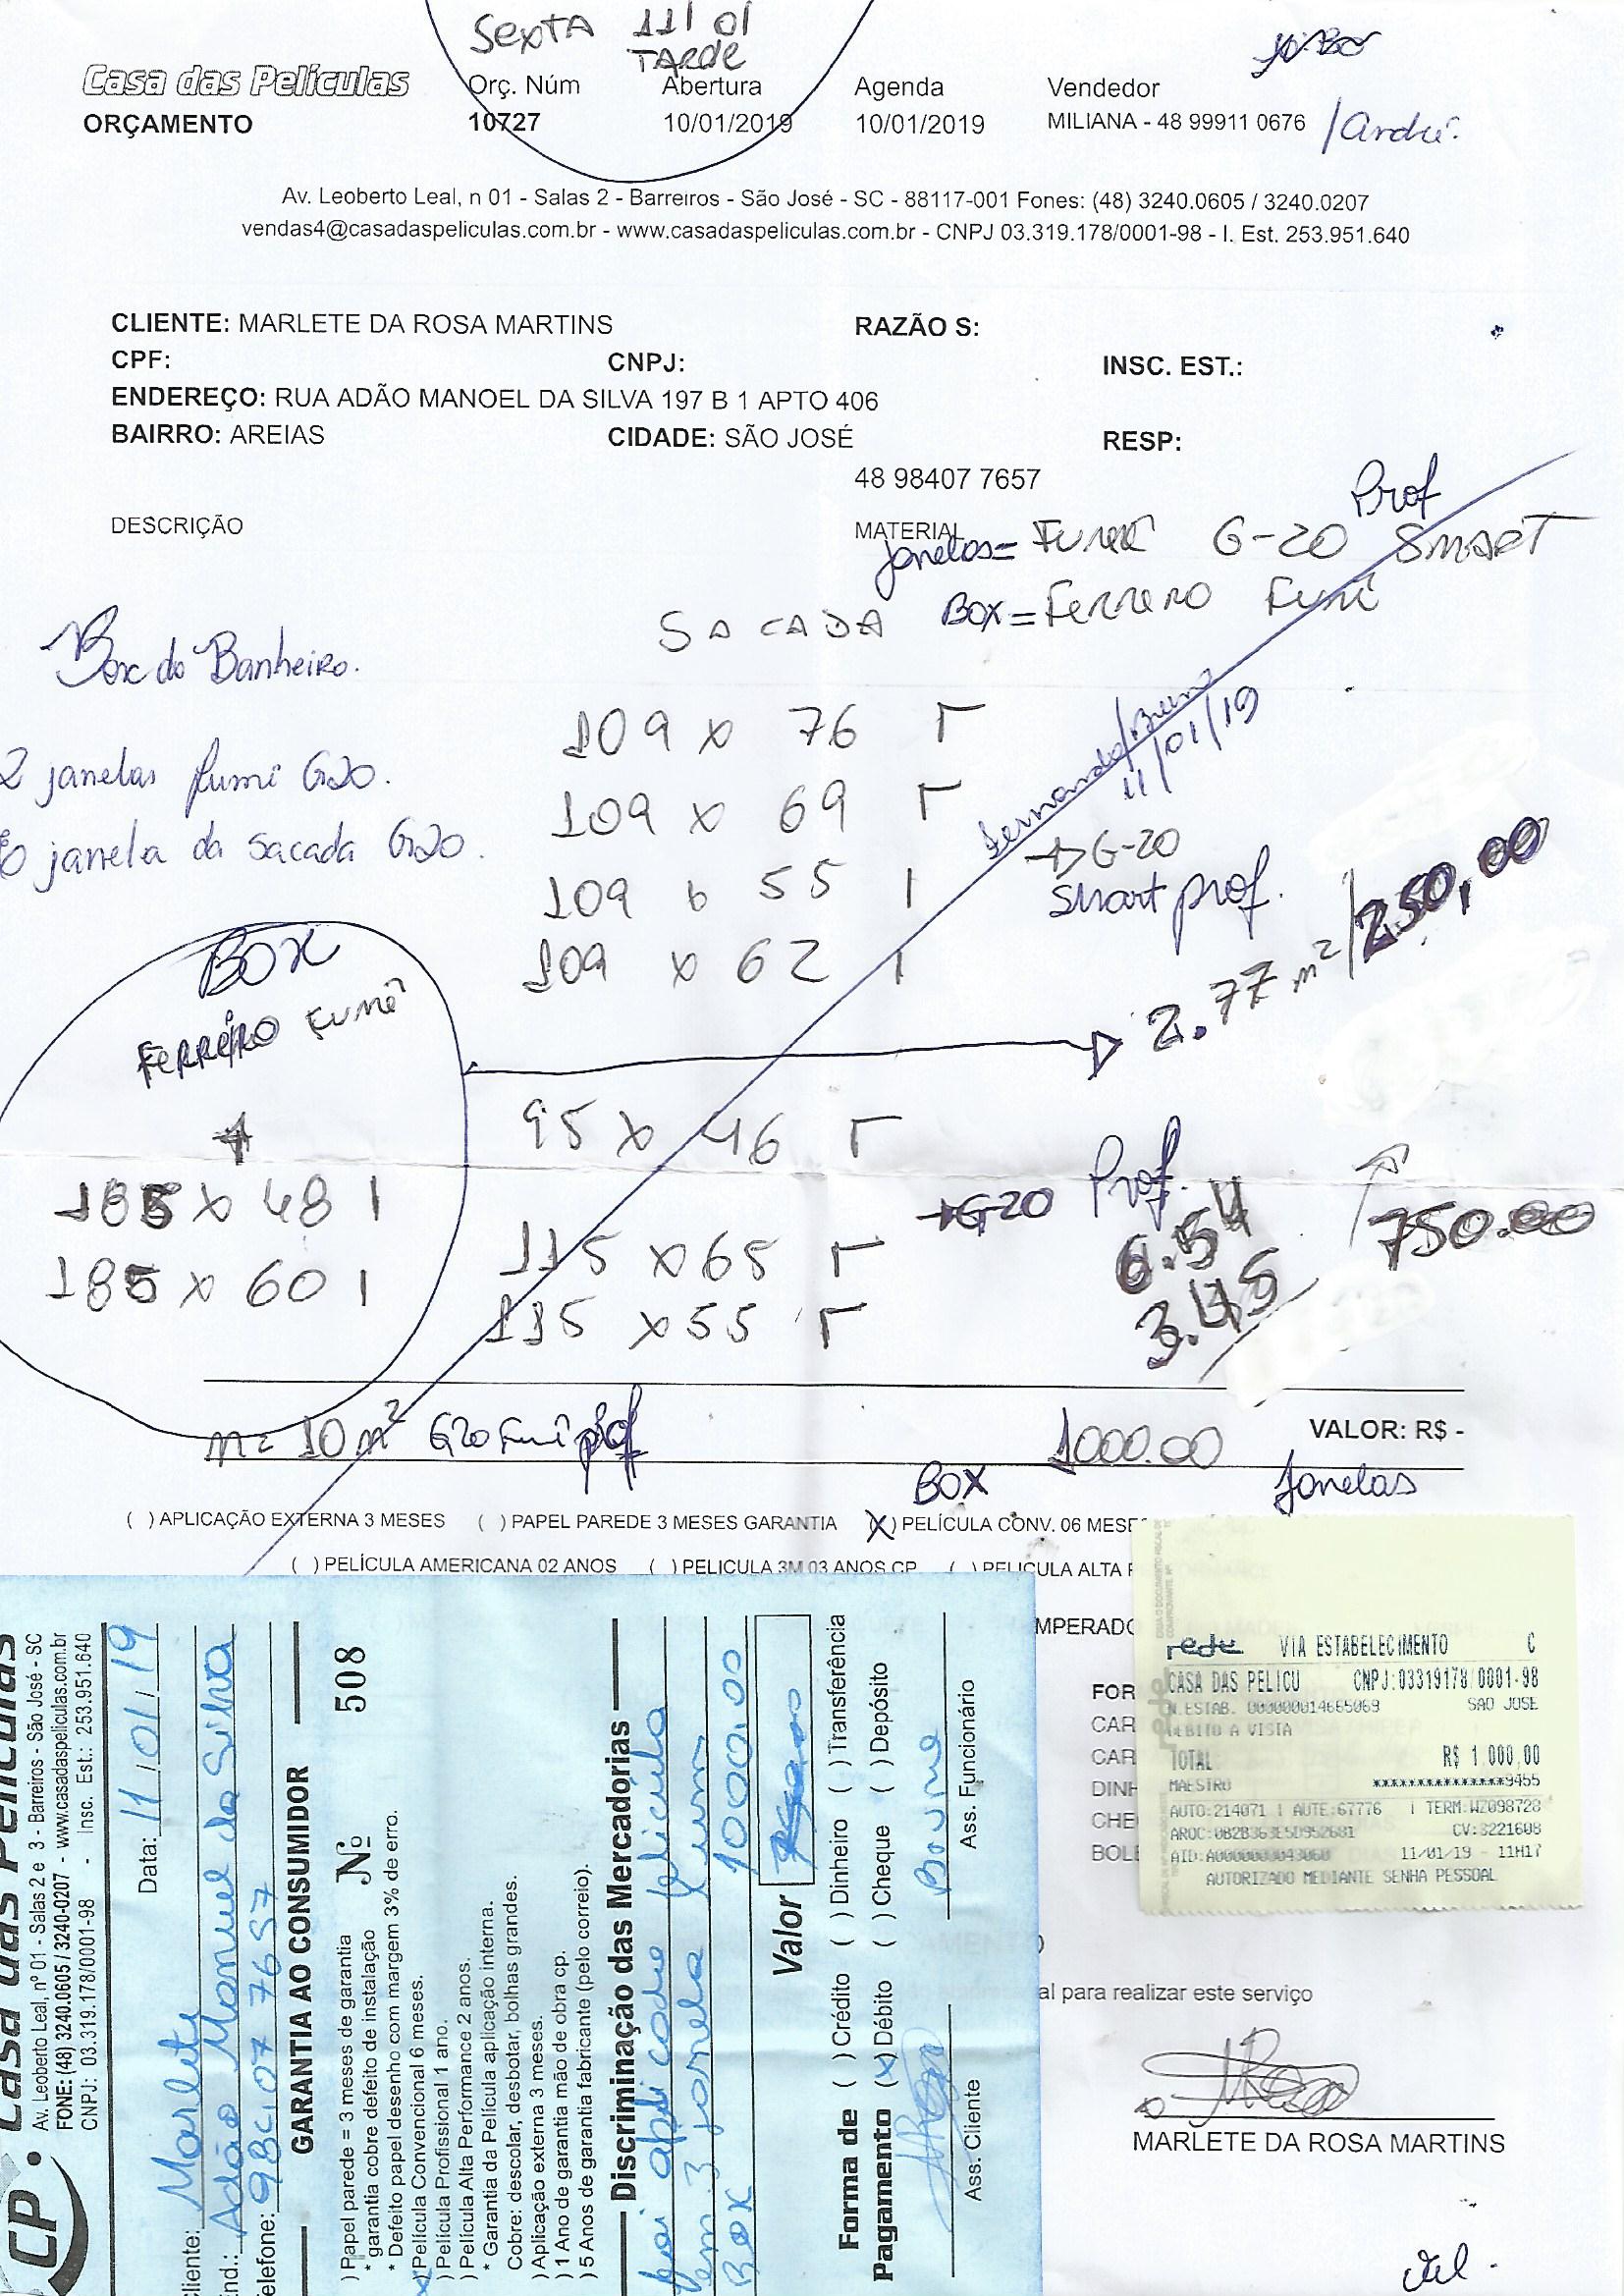 Sexta 11/01
TARDE
Casa das Películas
ORÇAMENTO
Orç. Núm
10727
Abertura
10/01/2019
Agenda
10/01/2019
Vendedor
MILIANA - 48 99911 0676 /André.
Av. Leoberto Leal, n 01 - Salas 2 - Barreiros - São José - SC - 88117-001 Fones: (48) 3240.0605 / 3240.0207
vendas4@casadaspeliculas.com.br - www.casadaspeliculas.com.br - CNPJ 03.319.178/0001-98 - I. Est. 253.951.640
CLIENTE: MARLETE DA ROSA MARTINS
RAZÃO S:
CPF:
CNPJ:
INSC. EST.:
ENDEREÇO: RUA ADÃO MANOEL DA SILVA 197 B 1 APTO 406
BAIRRO: AREIAS
CIDADE: SÃO JOSÉ
RESP:
48 98407 7657
DESCRIÇÃO
MATERIAL
Prof
Janelas= Fumê G-20 SMART
BOX= Ferrero Fumê
SACADA
Box do Banheiro.
2 janelas fumê G20.
janela da sacada G20.
109 x 76 Γ
109 x 69 Γ
109 x 55 1
109 x 62 1
Fernando/Bruno
11/01/19
G-20
Smart prof.
2.77 m²/250,00
BOX
Ferrero Fumê
185 x 48 1
185 x 60 1
95 x 46 Γ
115 x 65 Γ
115 x 55 Γ
G-20 Prof.
6.54
3.45
750.00
m= 10 m² G20 Fumê prof
1000.00
VALOR: R$ -
BOX
Janelas
( ) APLICAÇÃO EXTERNA 3 MESES ( ) PAPEL PAREDE 3 MESES GARANTIA (X) PELÍCULA CONV. 06 MESE
( ) PELÍCULA AMERICANA 02 ANOS ( ) PELICULA 3M 03 ANOS CP ( ) PELICULA ALTA P
MPERADO
FOR
CAR
CAR
DINH
CHE
BOLE
rede VIA ESTABELECIMENTO C
CASA DAS PELICU CNPJ:03319178/0001-98
N.ESTAB. 000000014665069 SAO JOSE
DEBITO A VISTA
TOTAL R$ 1.000,00
MAESTRO ***************9455
AUTO:214071 | AUTE:67776 | TERM:WZ098728
CV:3221608
11/01/19 - 11H17
AUTORIZADO MEDIANTE SENHA PESSOAL
al para realizar este serviço
MARLETE DA ROSA MARTINS
CP. Casa das Películas
Av. Leoberto Leal, nº 01 - Salas 2 e 3 - Barreiros - São José - SC
FONE: (48) 3240.0605 / 3240-0207 - www.casadaspeliculas.com.br
CNPJ: 03.319.178/0001-98 - Insc. Est.: 253.951.640
Data: 11/01/19
cliente: Marlety
End.: Adão Manuel da Silva
elefone: 984 07 7657
GARANTIA AO CONSUMIDOR
Nº 508
) Papel parede = 3 meses de garantia
* garantia cobre defeito de instalação
* Defeito papel desenho com margem 3% de erro.
x) Película Convencional 6 meses.
) Película Profissional 1 ano.
) Película Alta Performance 2 anos.
* Garantia da Película aplicação interna.
Cobre: descolar, desbotar, bolhas grandes.
) Aplicação externa 3 meses.
) 1 Ano de garantia mão de obra cp.
) 5 Anos de garantia fabricante (pelo correio).
Discriminação das Mercadorias
Foi aplicado pelicula
em 3 janela 1 um
Box 1000,00
Valor
Forma de Pagamento
( ) Crédito ( ) Dinheiro ( ) Transferência
(x) Débito ( ) Cheque ( ) Depósito
Ass. Cliente
Ass. Funcionário